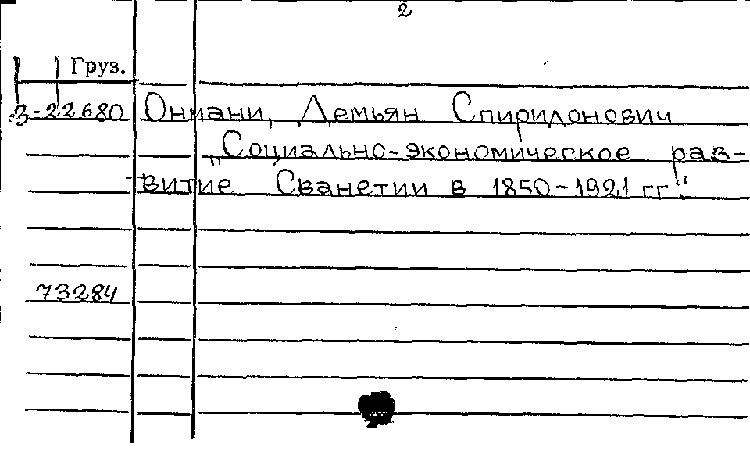 2
Груз.
3-22680 Ониани, Демьян Спиридонович
"Социально-экономическое раз-
витие Сванетии в 1850-1921 гг".
73284